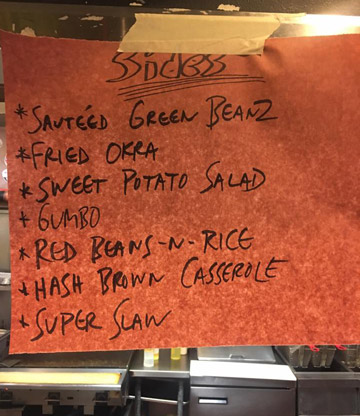 SSidess
*SAUTÉED GREEN BEANZ
*FRIED OKRA
*SWEET POTATO SALAD
*GUMBO
*RED BEANS-N-RICE
*HASH BROWN CASSEROLE
*SUPER SLAW